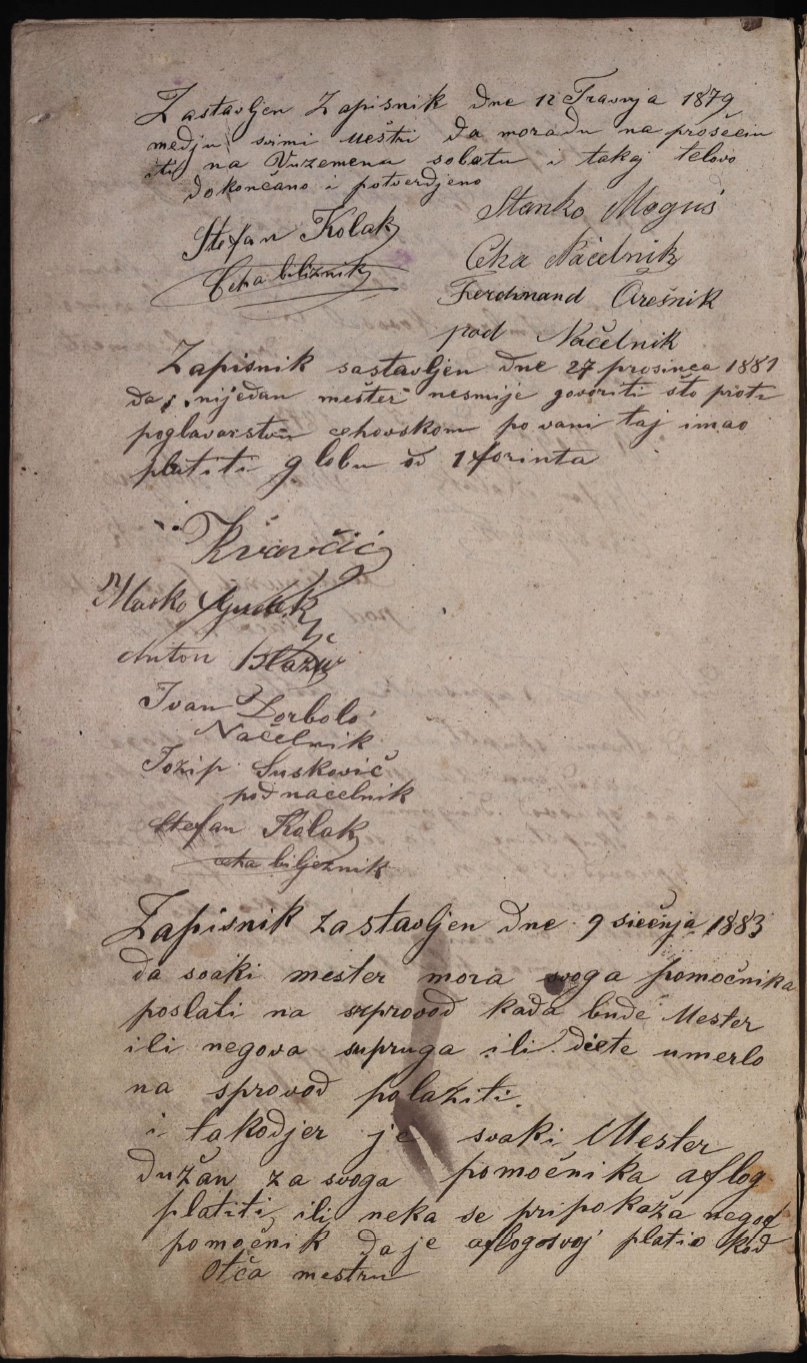 Zastavljen Zapisnik dne 12 Travnja 1879
medju svimi meštri da moradu na prošeciu
iti na Vuzemenu sobotu i takaj telovo
dokončano i potverdjeno
Stefan Kolak
Ceha biližnik
Stanko Moguš
Ceha Načelnik
Ferdinand Orešnik
pod Načelnik
Zapisnik sastavljen dne 27 prosinca 1881
da nijedan mešter nesmije govoriti što proti
poglavarstvu cehovskom po vani taj imao
platiti globu od 1 forinta
Kvavčić
Marko
Anton Blažu
Ivan Dorbolo
Načelnik
Jozip Susković
podnacelnik
Stefan Kolak
ceha biljeznik
Zapisnik zastavljen dne 9 siečnja 1883
da svaki mester mora svoga pomočnika
poslati na sprovod kada bude Mester
ili negova supruga ili diete umerlo
na sprovod polaziti.
i takodjer je svaki Mester
dužan za svoga pomočnika aflog
platiti ili neka se pripokaža negov
pomočnik da je aflog svoj platio kod
Otča mestru